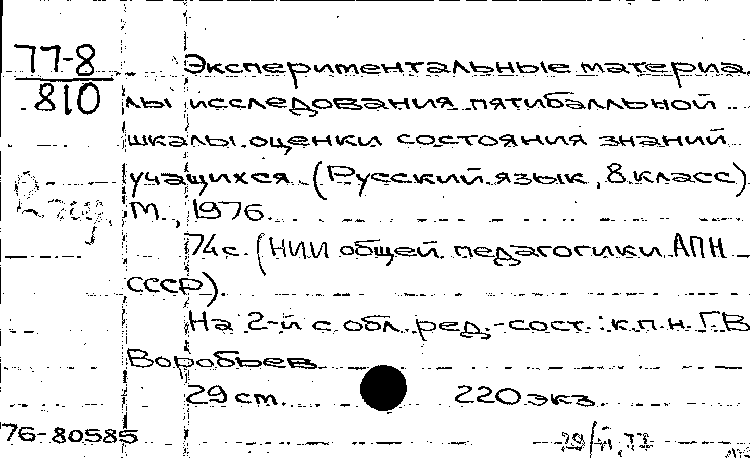 77-8
810
Экспериментальные материа
лы исследования пятибалльной
шкалы оценки состояния знаний
учащихся. (Русский язык, 8 класс)
М., 1976.
74 с. (НИИ общей педагогики АПН
СССР).
На 2-й с обл. ред.-сост.: к.п.н. Г.В
Воробьев
29 см. 220 экз.
76-80585